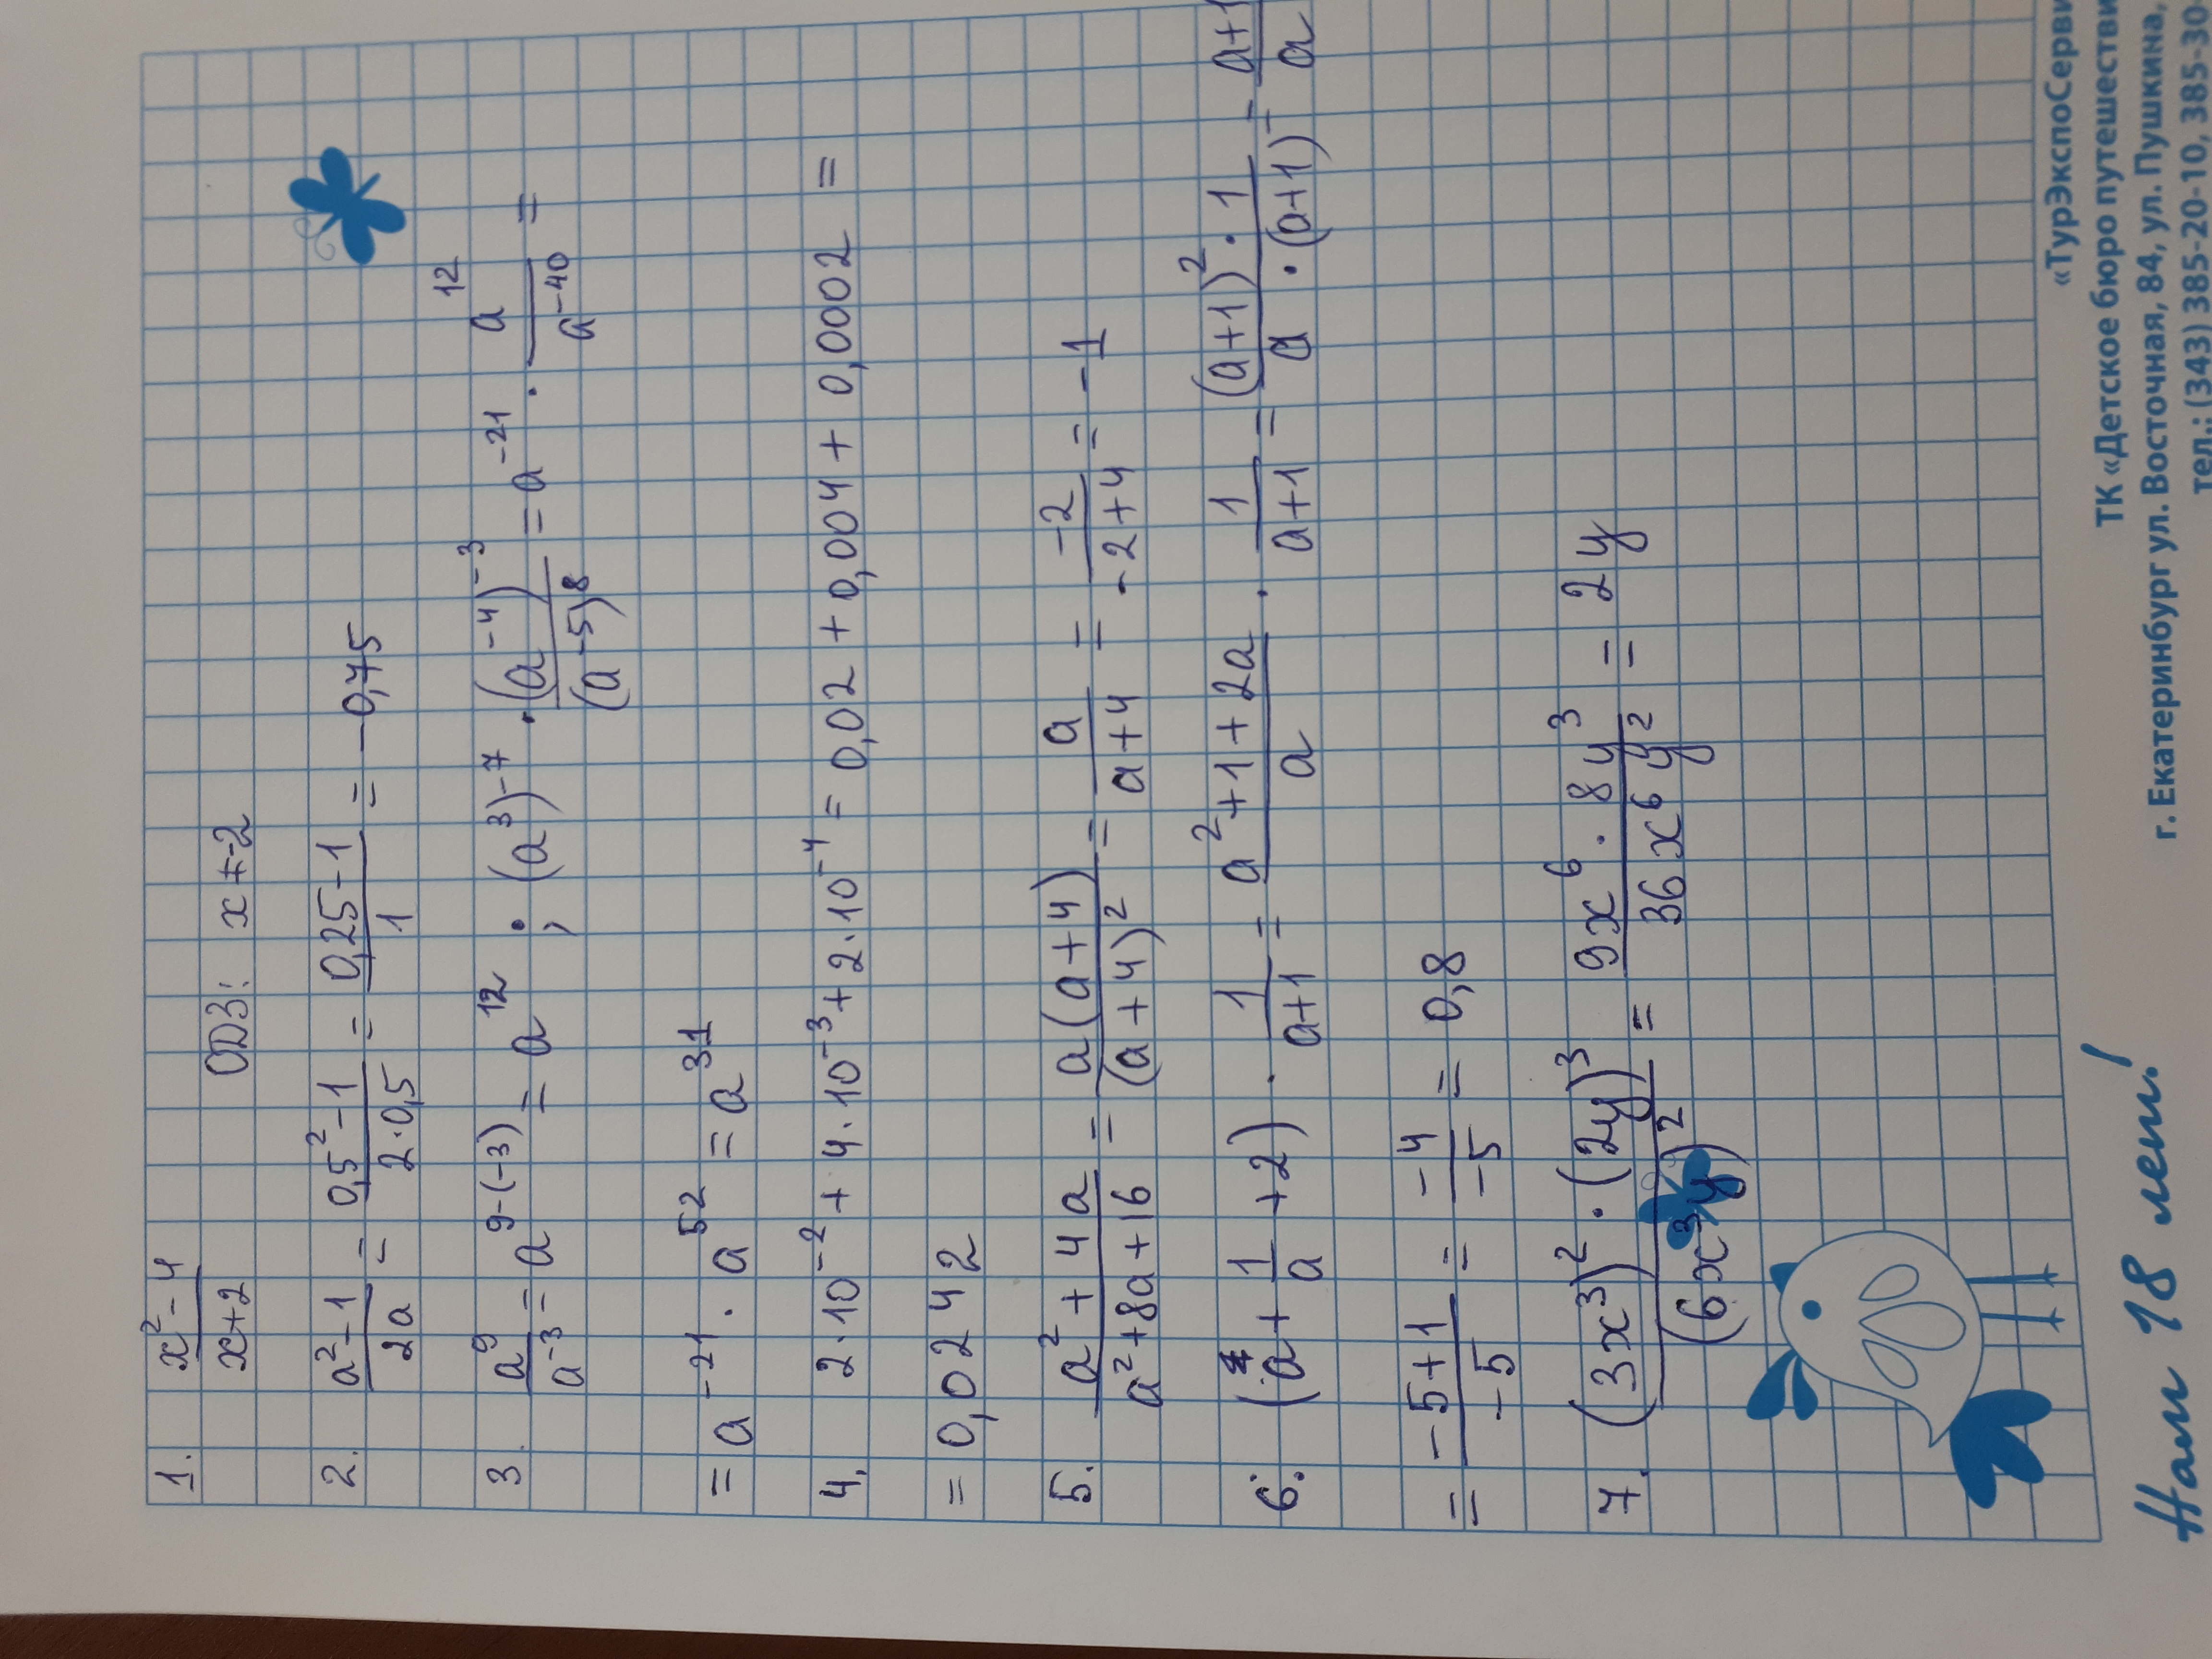 1. (x² - 4)/(x+2) ОДЗ: x ≠ -2
2. (a² - 1)/(2a) = (0,5² - 1)/(2·0,5) = (0,25 - 1)/1 = -0,75
3. a⁹/a⁻³ = a⁹⁻⁽⁻³⁾ = a¹² ; (a³)⁻⁷ · (a⁻⁴)⁻³/(a⁻⁵)⁸ = a⁻²¹ · a¹²/a⁻⁴⁰ =
= a⁻²¹ · a⁵² = a³¹
4. 2·10⁻² + 4·10⁻³ + 2·10⁻⁴ = 0,02 + 0,004 + 0,0002 =
= 0,0242
5. (a² + 4a)/(a² + 8a + 16) = a(a+4)/(a+4)² = a/(a+4) = -2/(-2+4) = -1
6. (a + 1/a + 2) · 1/(a+1) = (a² + 1 + 2a)/a · 1/(a+1) = ((a+1)² · 1)/(a · (a+1)) = (a+1)/a
= (-5+1)/-5 = -4/-5 = 0,8
7. ((3x³)² · (2y)³)/(6x³y)² = (9x⁶ · 8y³)/(36x⁶y²) = 2y
Нам 18 лет!
«ТурЭкспоСерви
ТК «Детское бюро путешестви
г. Екатеринбург ул. Восточная, 84, ул. Пушкина,
тел.: (343) 385-20-10, 385-30-